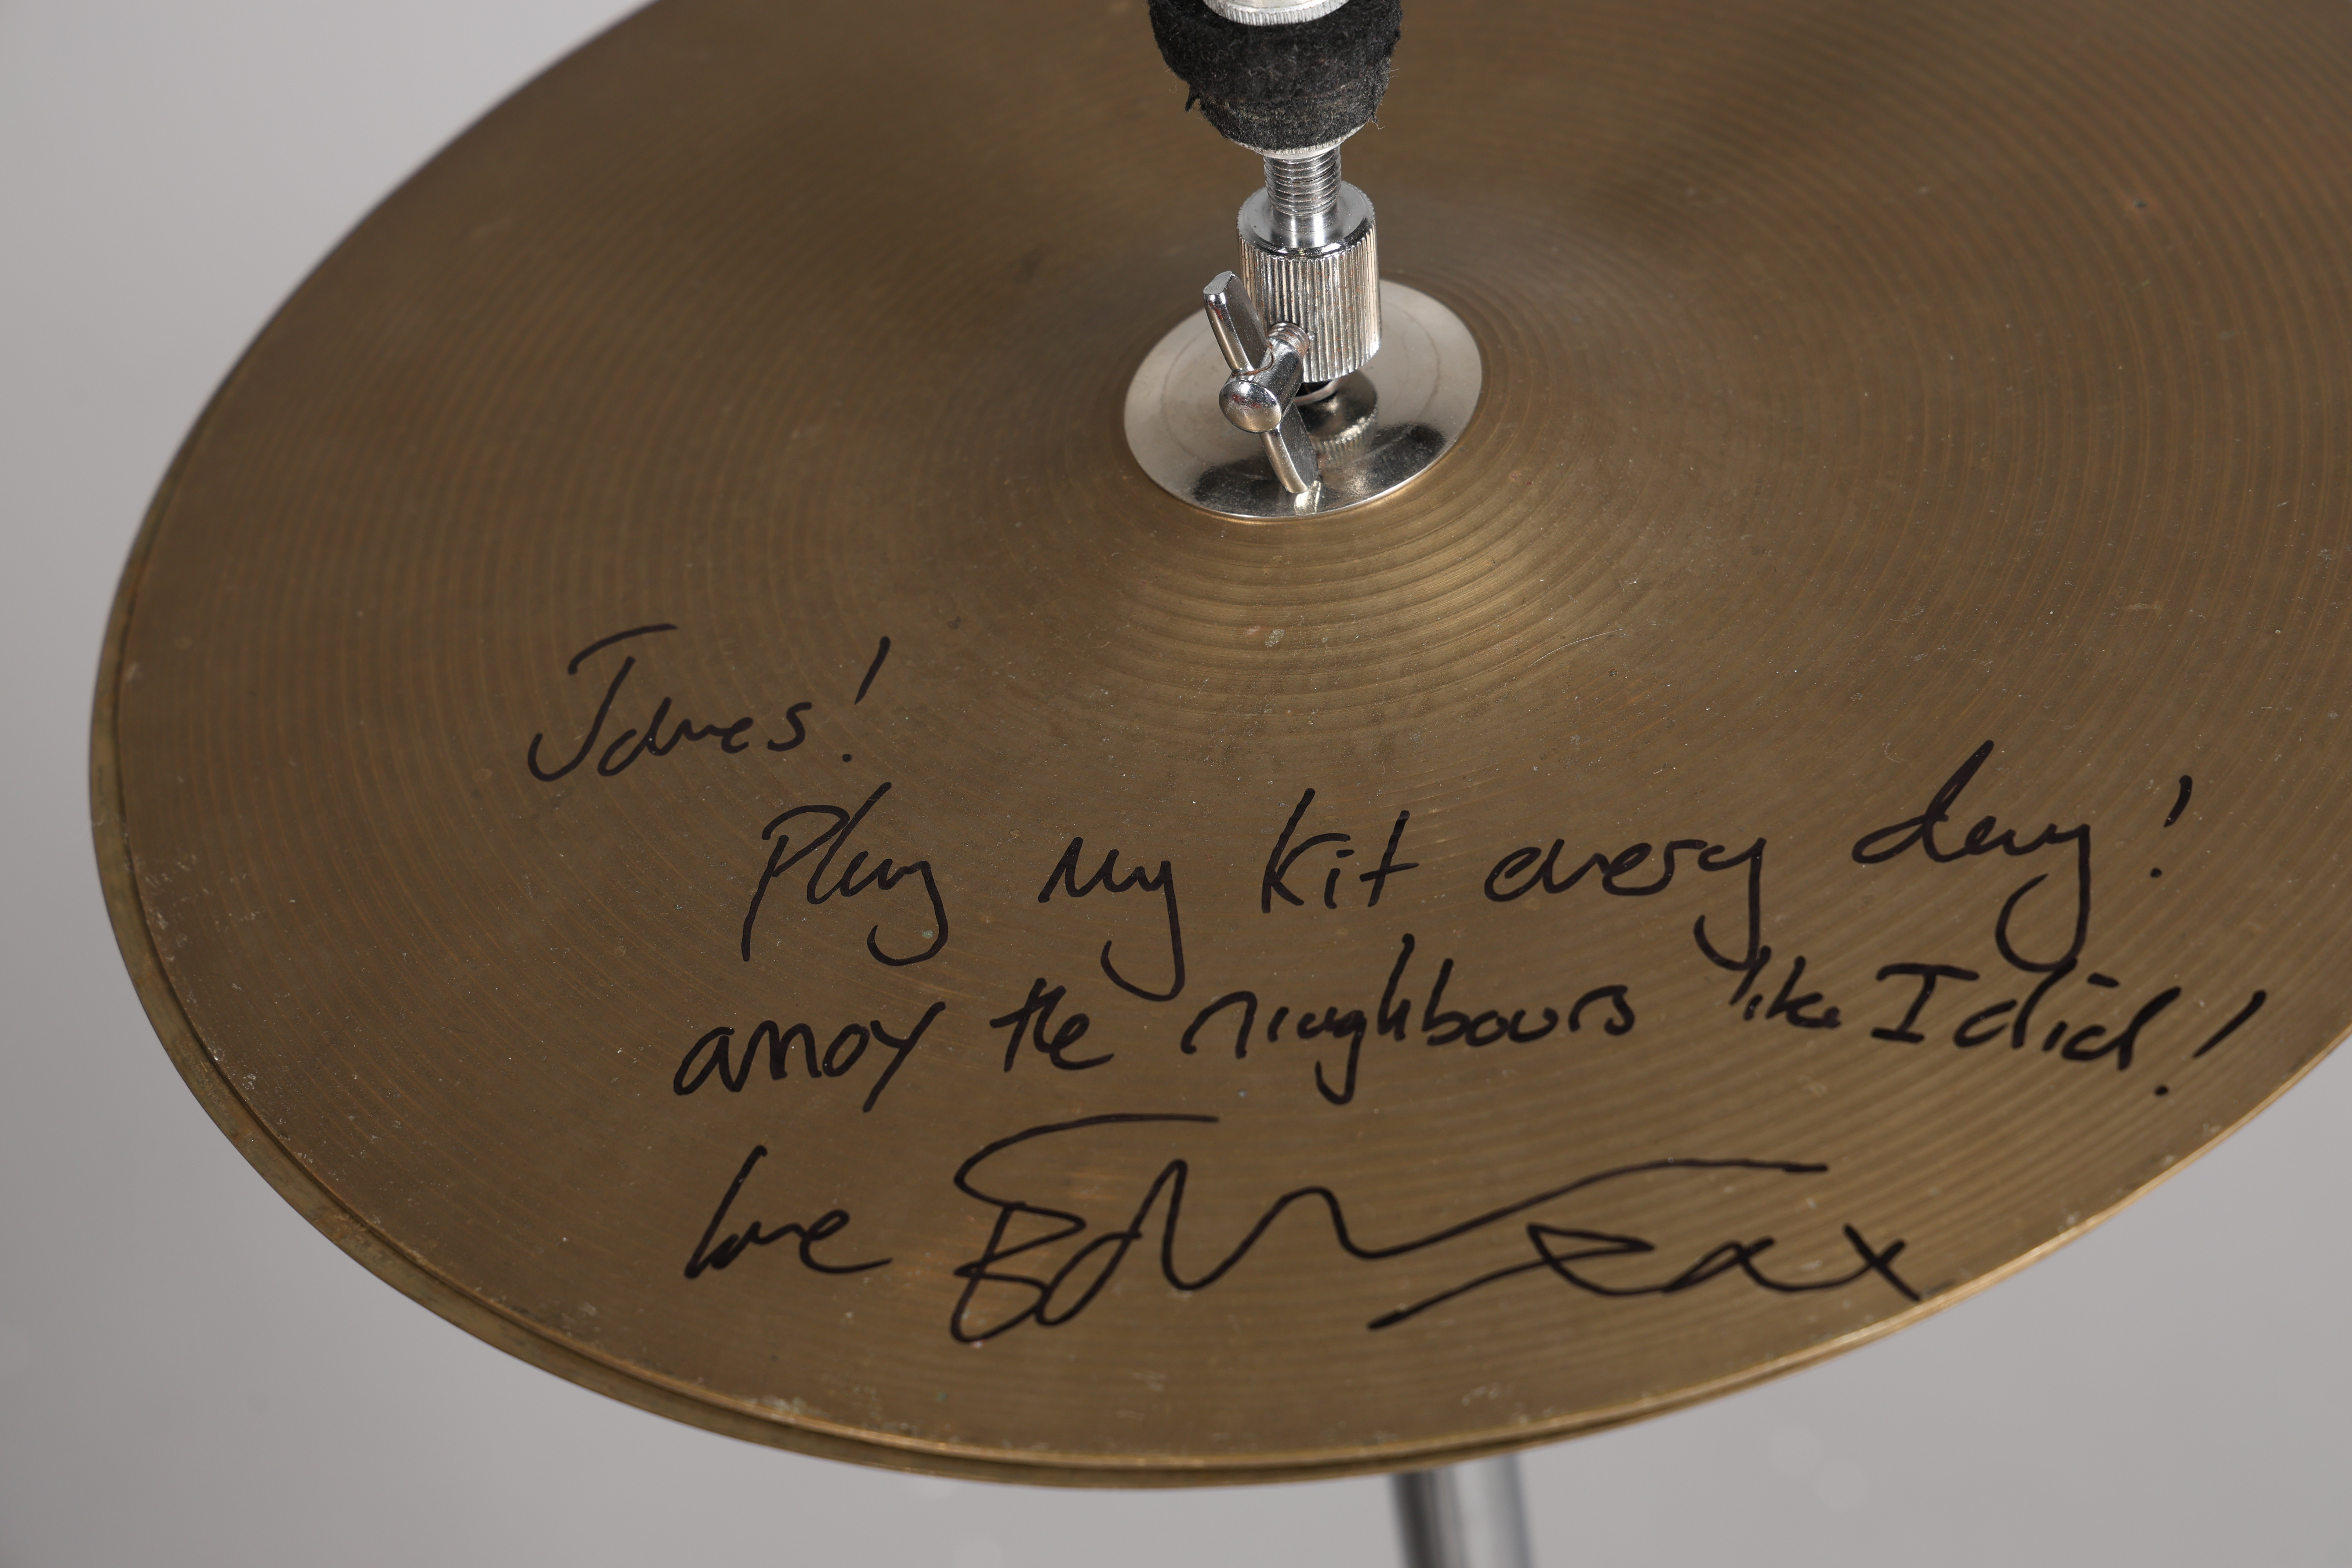 James!
Play my kit every day!
annoy the nieghbours like I did!
love